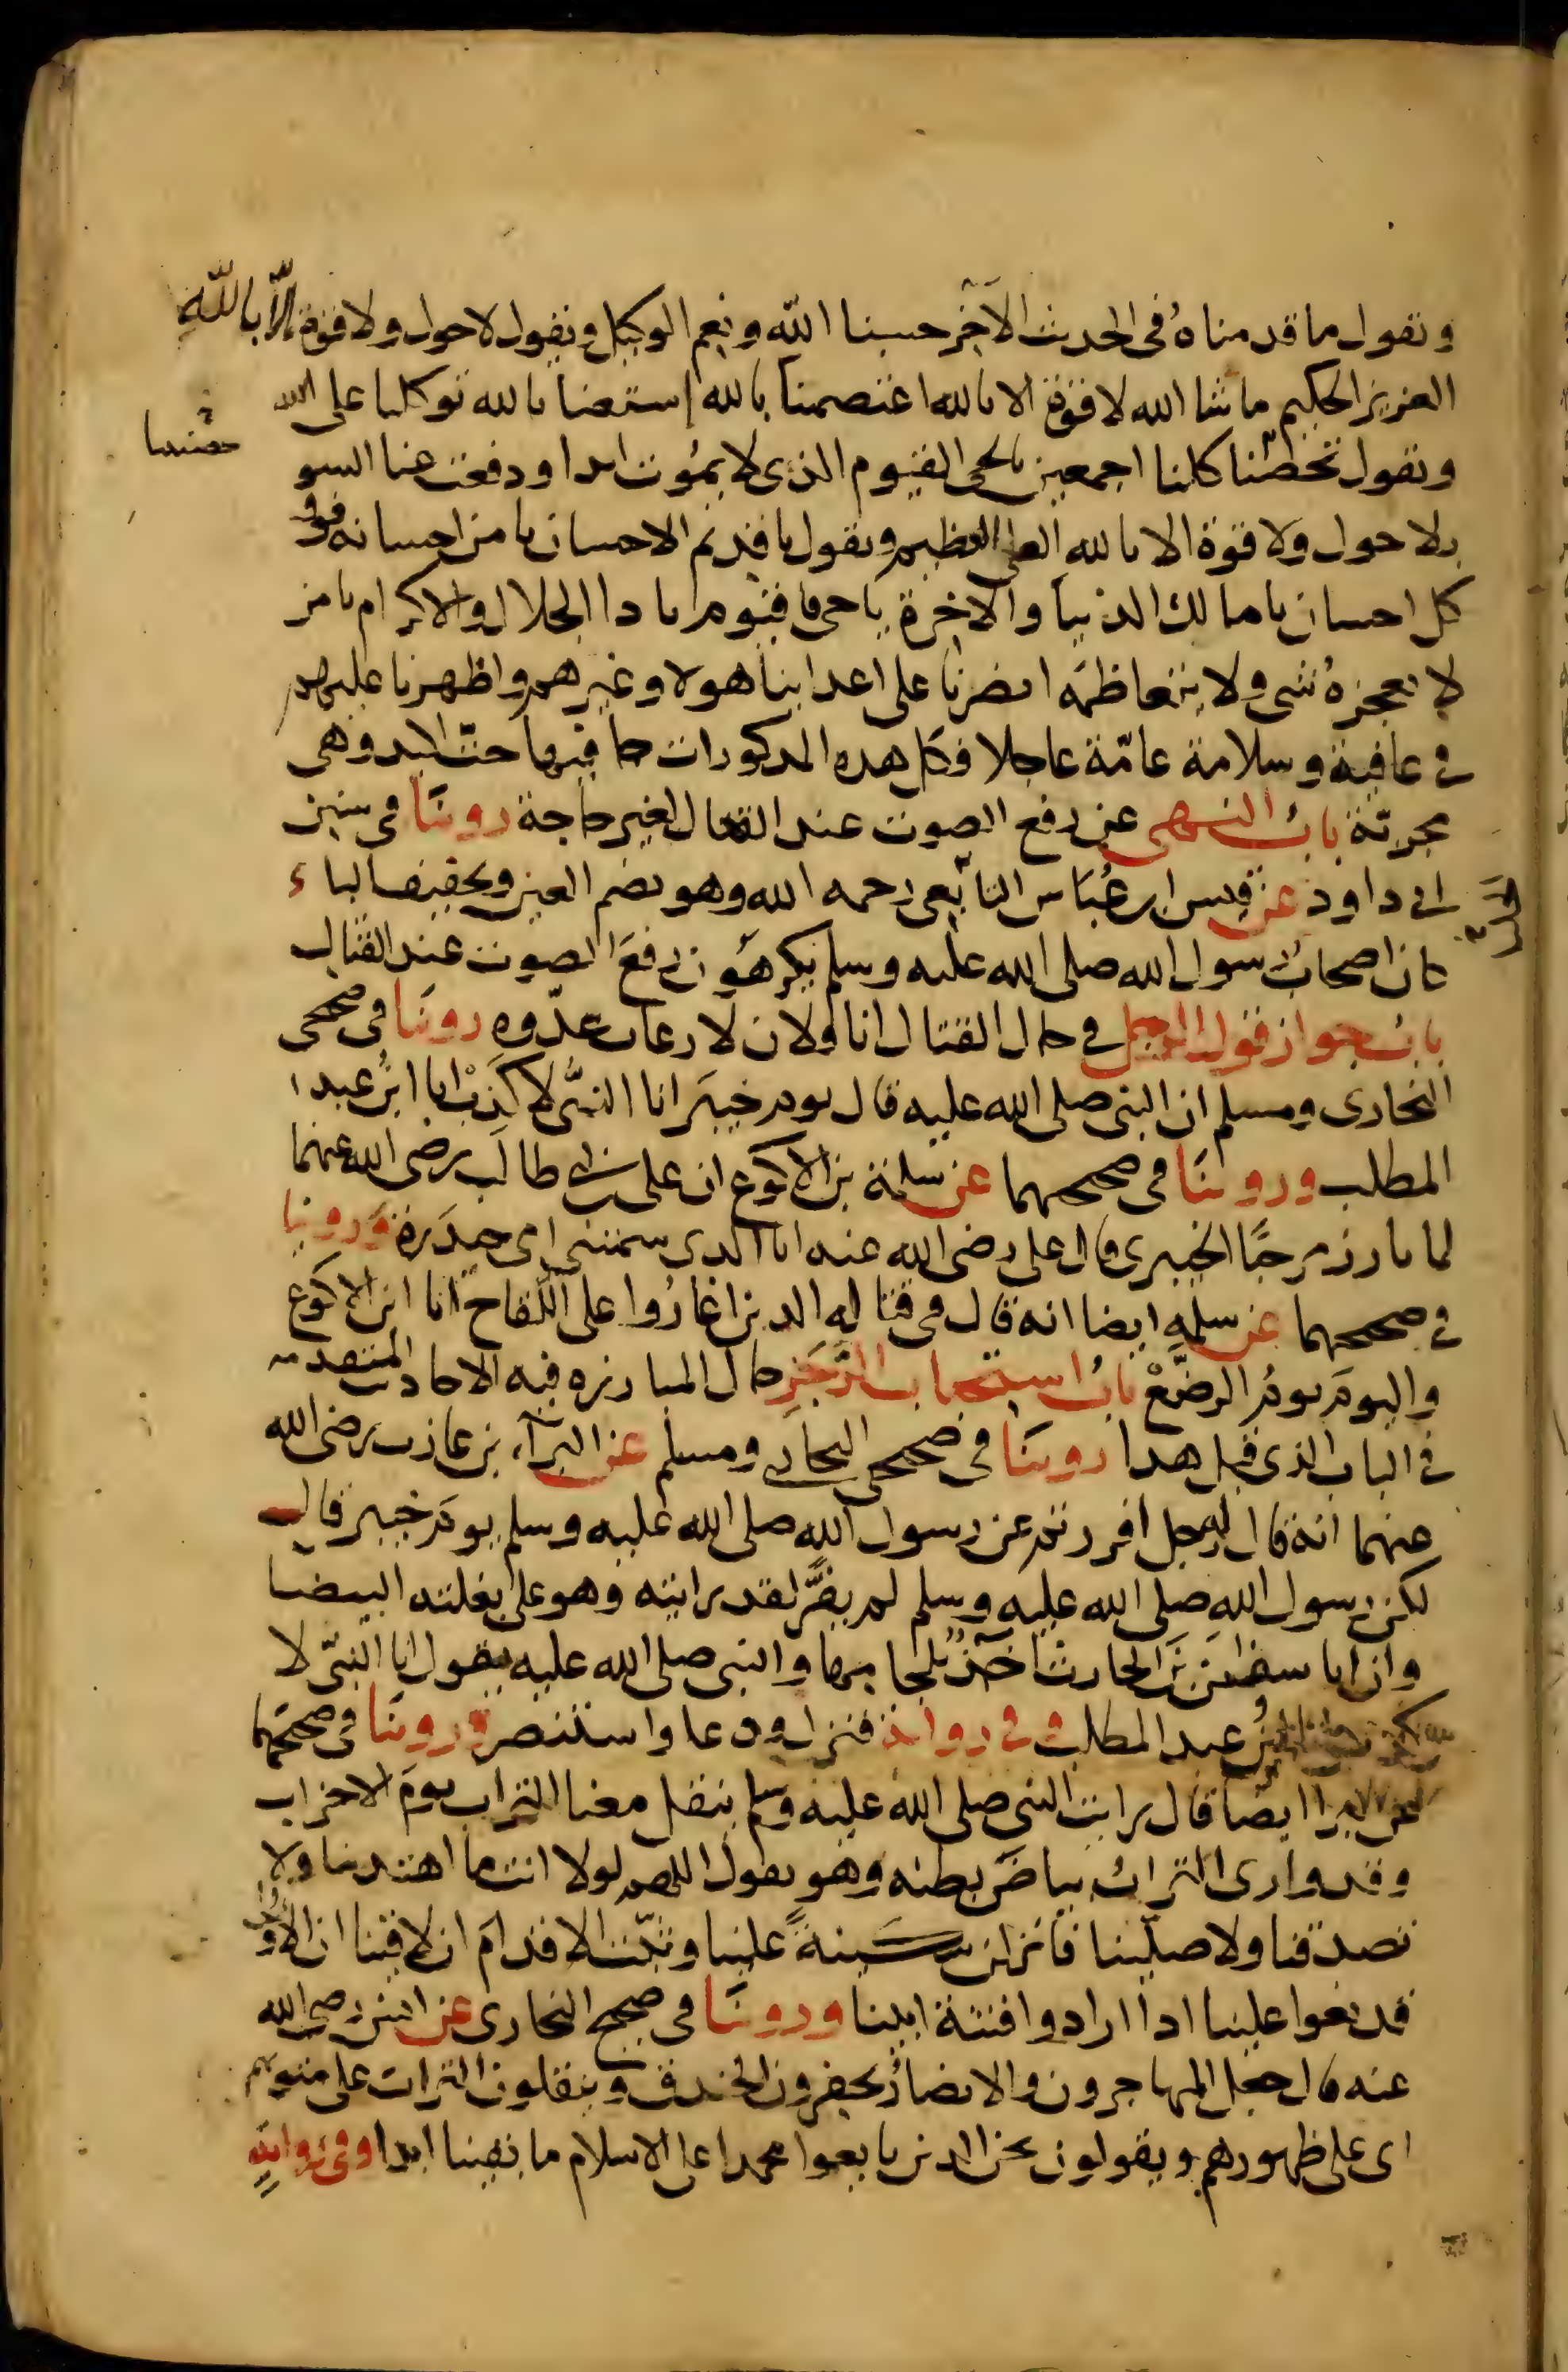 ونقول ما قدمناه في الحديث الآخر حسبنا الله ونعم الوكيل ونقول لا حول ولا قوة الا بالله
العزيز الحكيم ما شا الله لا قوة الا بالله اعتصمنا بالله إستعنا بالله توكلنا على الله
ونقول تحصنا كلنا اجمعين بالحي القيوم الذي لا يموت ابدا ودفعت عنا السو
حصنتنا
بلا حول ولا قوة الا بالله العلي العظيم ونقول يا قديم الاحسان يا من احسانه فوق
كل احسان يا مالك الدنيا والاخرة يا حي يا قيوم يا ذا الجلال والاكرام يا من
لا يعجزه شي ولا يتعاظمه انصرنا على اعداينا هولا وغيرهم واظهرنا عليهم
في عافية وسلامة عامّة عاجلا فكل هذه المذكورات جا فيها حث اكيد وهي
مجربّة باب النهي عن رفع الصوت عند القتال لغير حاجة روينا في سنن
ابي داود عن قيس ابن عُبَاس التابعي رحمه الله وهو بضم العين وتخفيف الباء
كان اصحاب رسول الله صلى الله عليه وسلم يكرهون رفع الصوت عند القتال
باب جواز قول الرجل في حال القتال انا فلان لارعاب عدّوه روينا في صحيحي
البخاري ومسلم ان النبي صلى الله عليه قال يوم خيبر انا النبّي لا كذبْ انا ابنُ عبد ا
المطلب وروينا في صحيحهما عن سلمة بن الاكوع ان علي بن ابي طالب رضي الله عنهما
لما بارز مرحبًا الخيبري قال علي رضي الله عنه انا الذي سمتني امي حيدَره وروينا
في صحيحهما عن سلمه ايضا انه قال في قتاله الذين اغارُوا على اللقاح انا ابن الاكوع
واليوم يومُ الرضّعْ باب استحباب الرَّجَزِ حال المبارزه فيه الاحاديث المتقدمه
في الباب الذي قبل هذا روينا في صحيحي البخاري ومسلم عن البرآء بن عازب رضي الله
عنهما انه قال له رجل افررتم عن رسول الله صلى الله عليه وسلم يوم خيبر قال
لكن رسول الله صلى الله عليه وسلم لم يفرَّ لقد رايته وهو على بغلته البيضا
وان ابا سفيان بن الحارث اخذٌ بلجامها والنبي صلى الله عليه يقول انا النبّي لا
كذب انا ابنُ عبد المطلب وفي رواية فنزل ودعا واستنصر وروينا في صحيحهما
عن البرا ايضا قال رايت النبي صلى الله عليه وسلم ينقل معنا التراب يوم الاحزاب
وقد وارى التراب بياض بطنه وهو يقول اللهم لولا انت ما اهتدينا ولا
تصدقنا ولا صلينا فانزلن سكينةً علينا وثبّت الاقدام ان لاقينا ان الاولى
قد بغوا علينا اذا ارادوا فتنة ابينا وروينا في صحيح البخاري عن انس رضي الله
عنه قال جعل المهاجرون والانصار يحفرون الخندق وينقلون التراب على متونهم
اى على ظهورهم ويقولون نحن الذين بايعوا محمدا على الاسلام ما بقينا ابدا وفي رواية